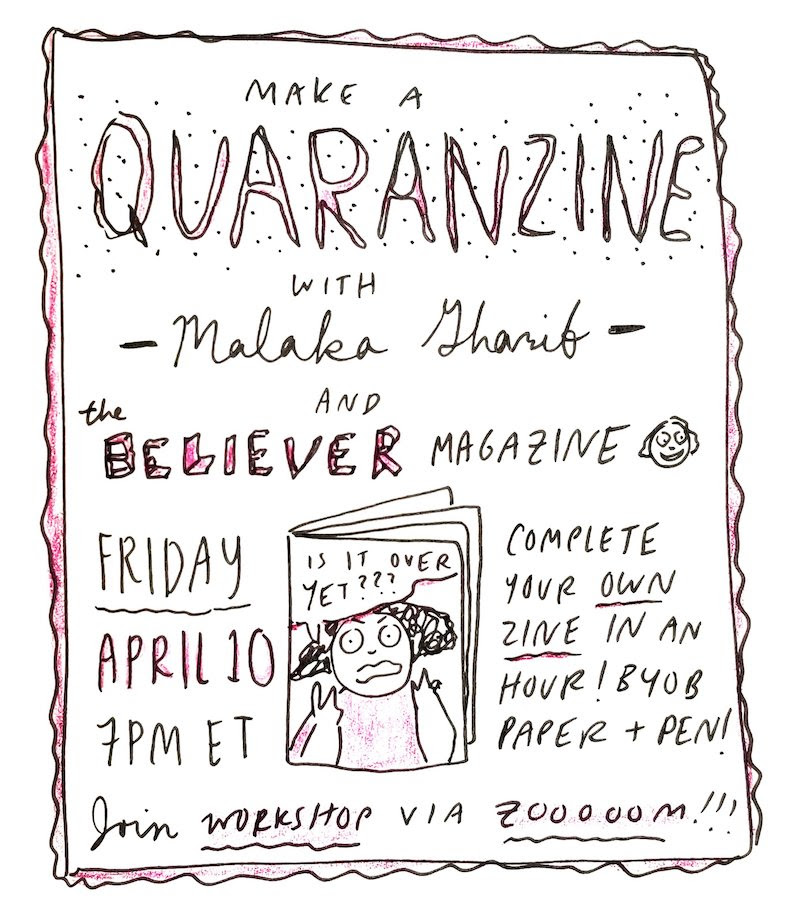 MAKE A
QUARANZINE
WITH
- Malaka Gharib -
AND
the
BELIEVER MAGAZINE
FRIDAY
APRIL 10
7PM ET
IS IT OVER
YET???
COMPLETE
YOUR OWN
ZINE IN AN
HOUR! BYOB
PAPER + PEN!
Join WORKSHOP VIA ZOOOOOM!!!